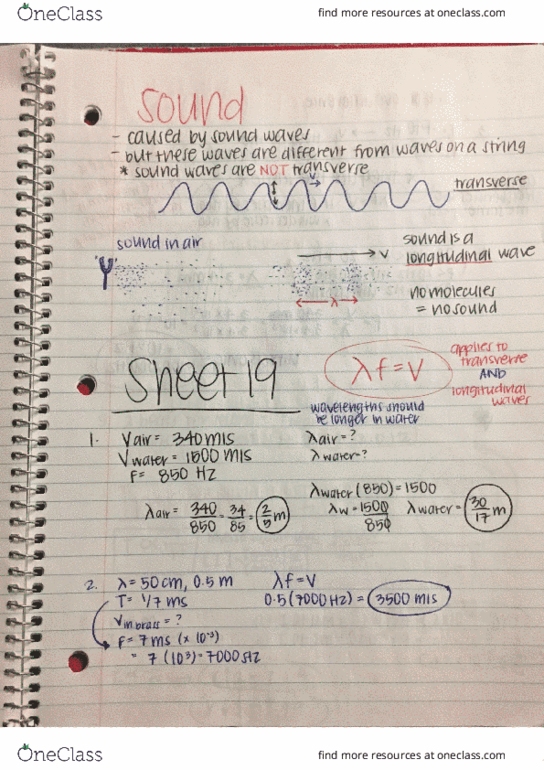 OneClass
find more resources at oneclass.com
Sound
- caused by sound waves
- but these waves are different from waves on a string
* sound waves are NOT transverse
transverse
sound in air
v
sound is a
longitudinal wave
λ
no molecules
= no sound
Sheet 19
λf = v
applies to
transverse
AND
longitudinal
waves
wavelengths should
be longer in water
1. Vair = 340 m/s
λair = ?
Vwater = 1500 m/s
λwater = ?
F = 850 HZ
λair = 340/850 = 34/85 = 2/5 m
λwater (850) = 1500
λw = 1500/850
λwater = 30/17 m
2. λ = 50 cm, 0.5 m
λf = V
T = 1/7 ms
0.5 (7000 HZ) = 3500 m/s
Vin brass = ?
F = 7 ms (x 10⁻³)
= 7 (10³) = 7000 HZ
OneClass
find more resources at oneclass.com